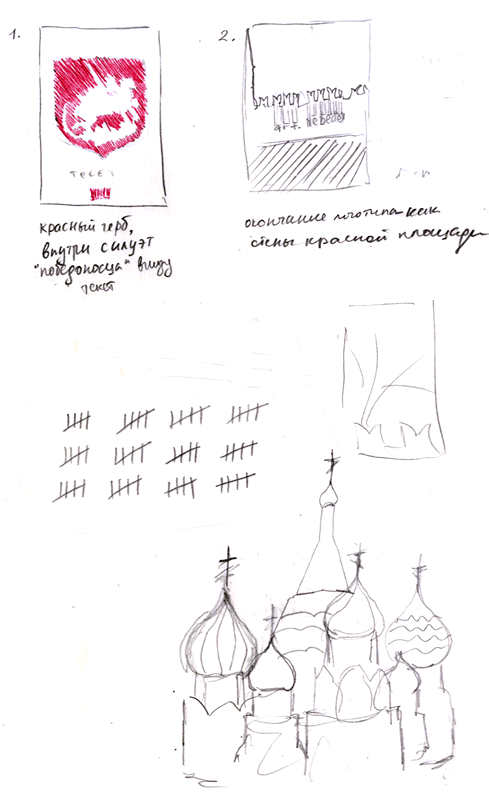 1.
2.
текст
art. lebedev
красный герб,
внутри силуэт
"победоносца" внизу
текст
окончание логотипа как
стены красной площади